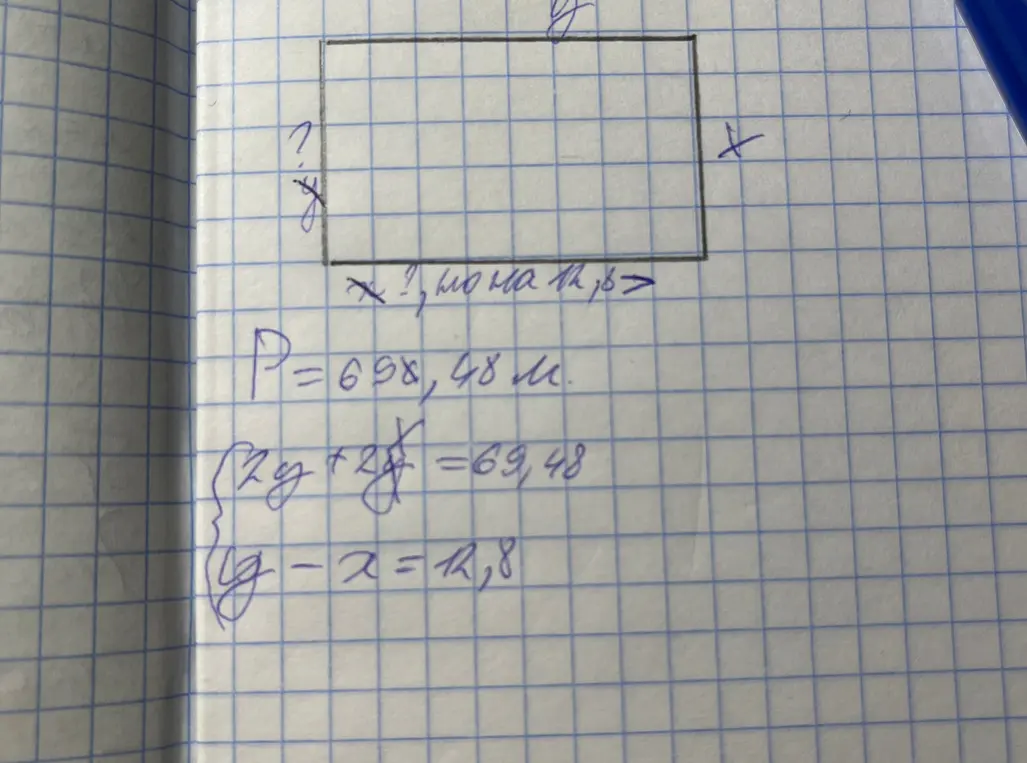 y
?
x
y
x ?, но на 12,8 >
P = 698,48 м.
2y + 2x = 69,48
y - x = 12,8